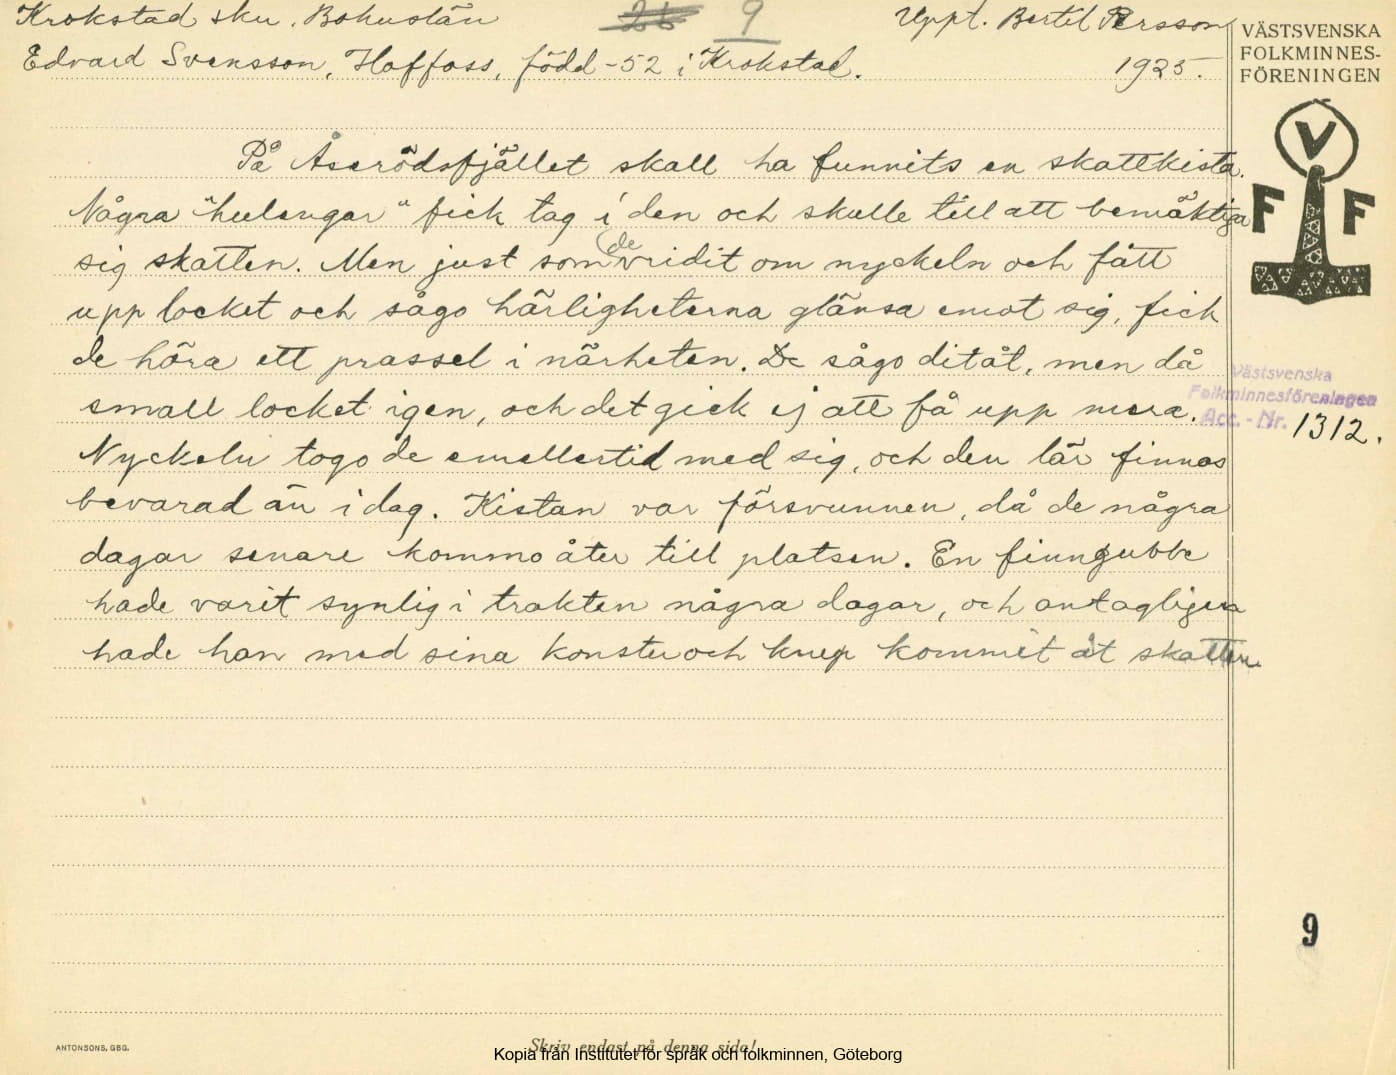 Krokstad skn. Bohuslän 9 Uppt. Bertil Persson
Edvard Svensson, Hoffoss, född -52 i Krokstad. 1925.
VÄSTSVENSKA
FOLKMINNES-
FÖRENINGEN
V
F F
På Åserödsfjället skall ha funnits en skattkista.
Några "hulingar" fick tag i den och skulle till att bemäktiga
sig skatten. Men just som de vridit om nyckeln och fått
upp locket och sågo härligheterna glänsa emot sig, fick
de höra ett prassel i närheten. De sågo ditåt, men då
small locket igen, och det gick ej att få upp mera.
Västsvenska
Folkminnesföreningen
Acc.-Nr. 1312.
Nyckeln togo de emellertid med sig, och den lär finnas
bevarad än i dag. Kistan var försvunnen, då de några
dagar senare kommo åter till platsen. En finngubbe
hade varit synlig i trakten några dagar, och antagligen
hade han med sina konster och knep kommit åt skatten.
9
ANTONSONS, GBG.
Skriv endast på denna sida!
Kopia från Institutet för språk och folkminnen, Göteborg